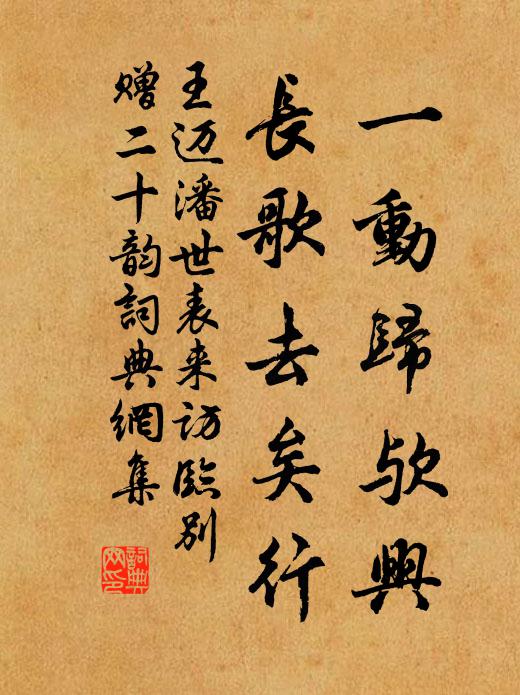 一動歸欤興
長歌去矣行
王迈潘世表来访臨别
赠二十韵詞典網集
詞典网印